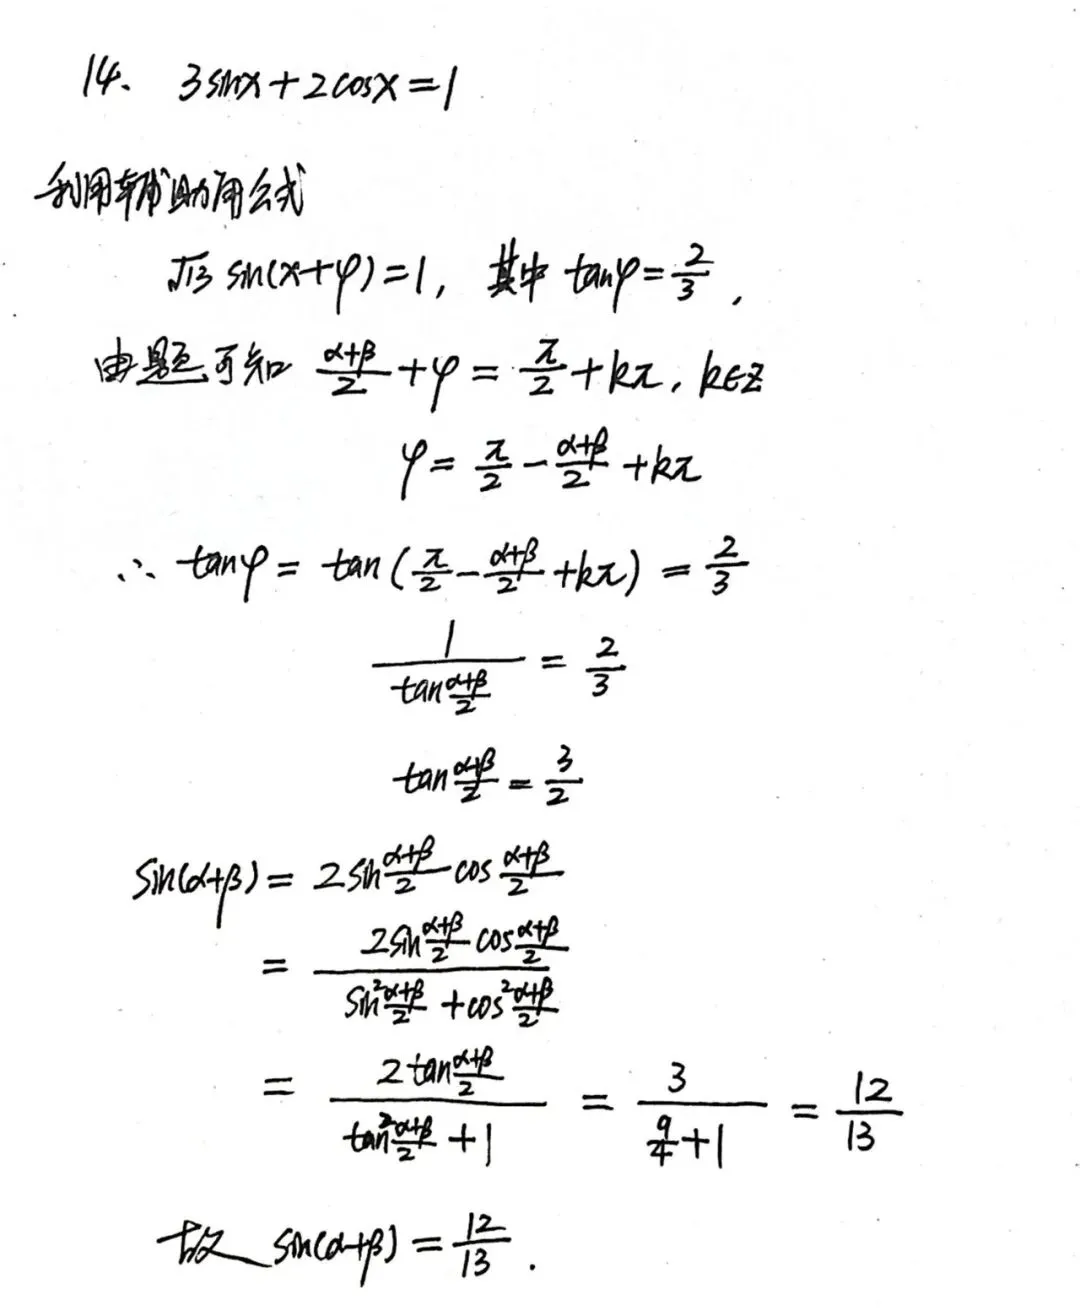 14. 3sinx+2cosx=1
利用辅助角公式
√13 sin(x+φ)=1, 其中 tanφ=2/3,
由题可知 (α+β)/2+φ=π/2+kπ, k∈Z
φ=π/2-(α+β)/2+kπ
∴ tanφ=tan(π/2-(α+β)/2+kπ)=2/3
1/(tan(α+β)/2)=2/3
tan(α+β)/2=3/2
sin(α+β)=2sin(α+β)/2 cos(α+β)/2
=(2sin(α+β)/2 cos(α+β)/2)/(sin²(α+β)/2+cos²(α+β)/2)
=(2tan(α+β)/2)/(tan²(α+β)/2+1)=3/(9/4+1)=12/13
故 sin(α+β)=12/13.